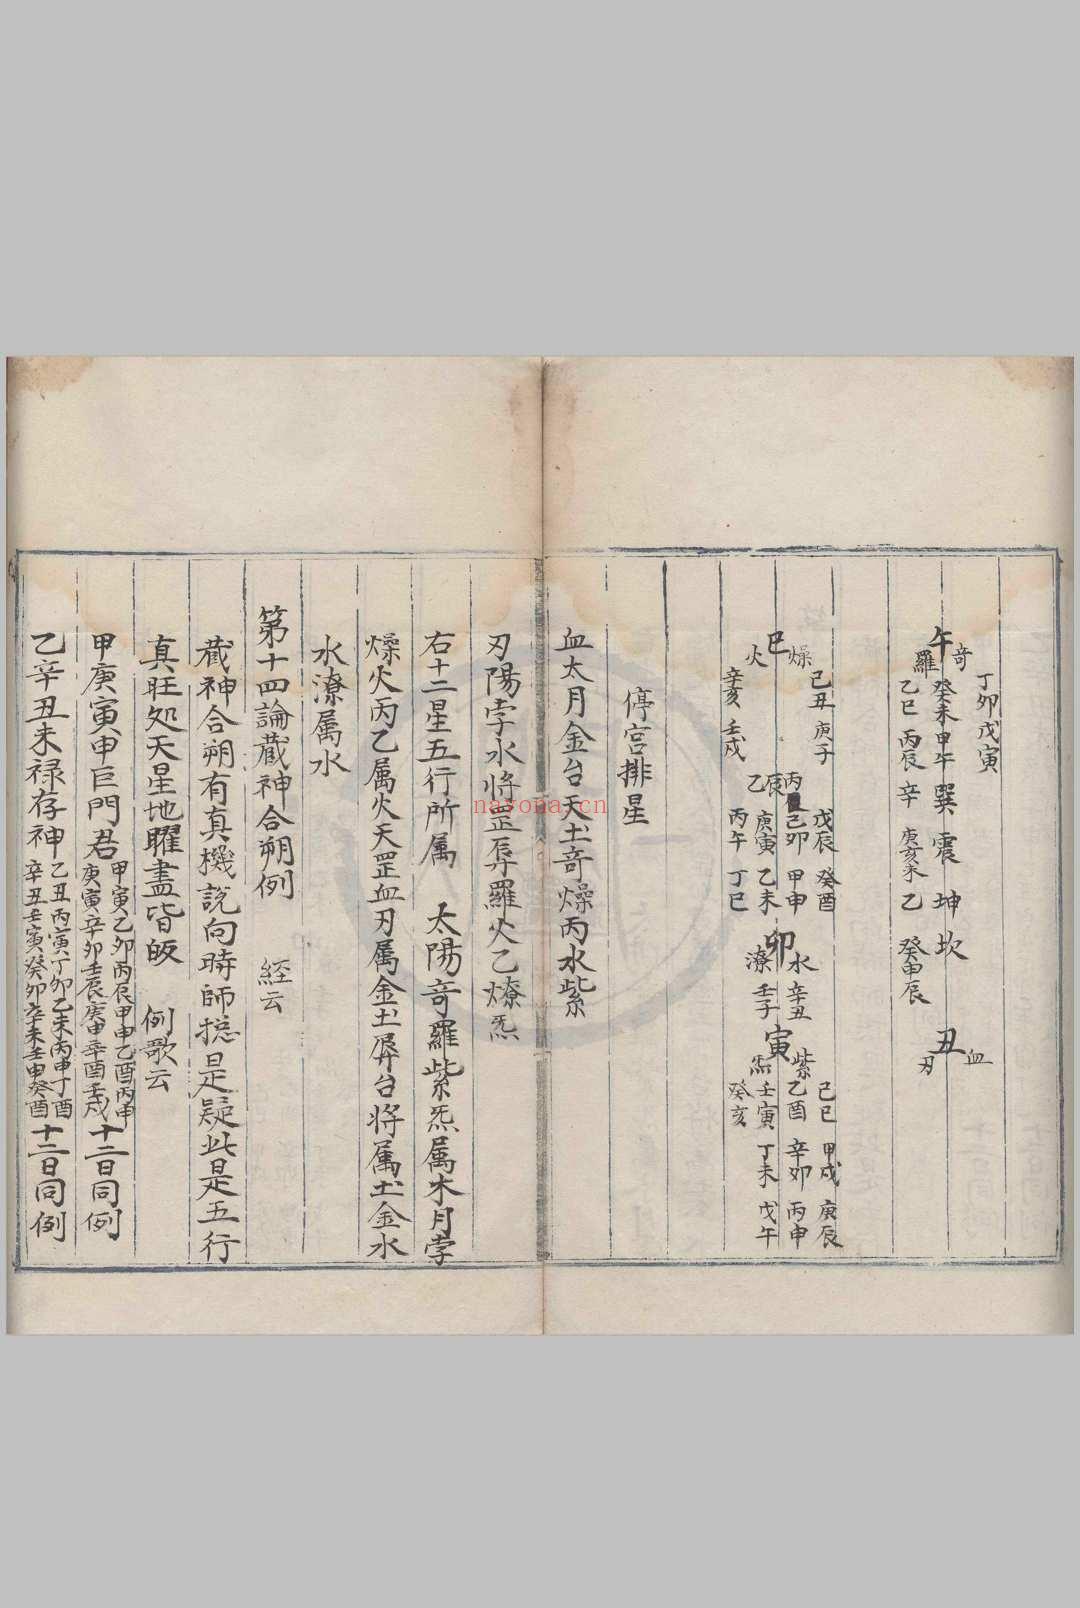 丁卯戊寅
午 奇 羅
癸未甲午 巽震坤坎
乙巳 丙辰 辛 庚亥未 乙 癸申辰
丑 血 刃
巳 燥 火
己丑 庚子
辛亥 壬戌
乙辰丙
戊辰 癸酉
己卯 甲申
庚寅 乙未
丙午 丁巳
卯 水 潦
辛丑
壬子
寅 紫 炁
己巳 甲戌 庚辰
乙酉 辛卯 丙申
壬寅 丁未 戊午
癸亥
停宫排星
血太月金台天土奇燥丙水紫
刃陽孛水將罡孱羅火乙燎炁
右十二星五行所属 太陽奇羅紫炁属木月孛
燥火丙乙属火天罡血刃属金土孱台將属土金水
水潦属水
第十四論藏神合朔例 経云
藏神合朔有真機説向時師捴是疑此是五行
真旺処天星地曜盡皆皈 例歌云
甲庚寅申巨門君 甲寅乙卯丙辰甲申乙酉丙申
庚寅辛卯壬辰庚申辛酉壬戌 十二日同例
乙辛丑未禄存神 乙丑丙寅丁卯乙未丙申丁酉
辛丑壬寅癸卯辛未壬申癸酉 十二日同例
nayona.cn